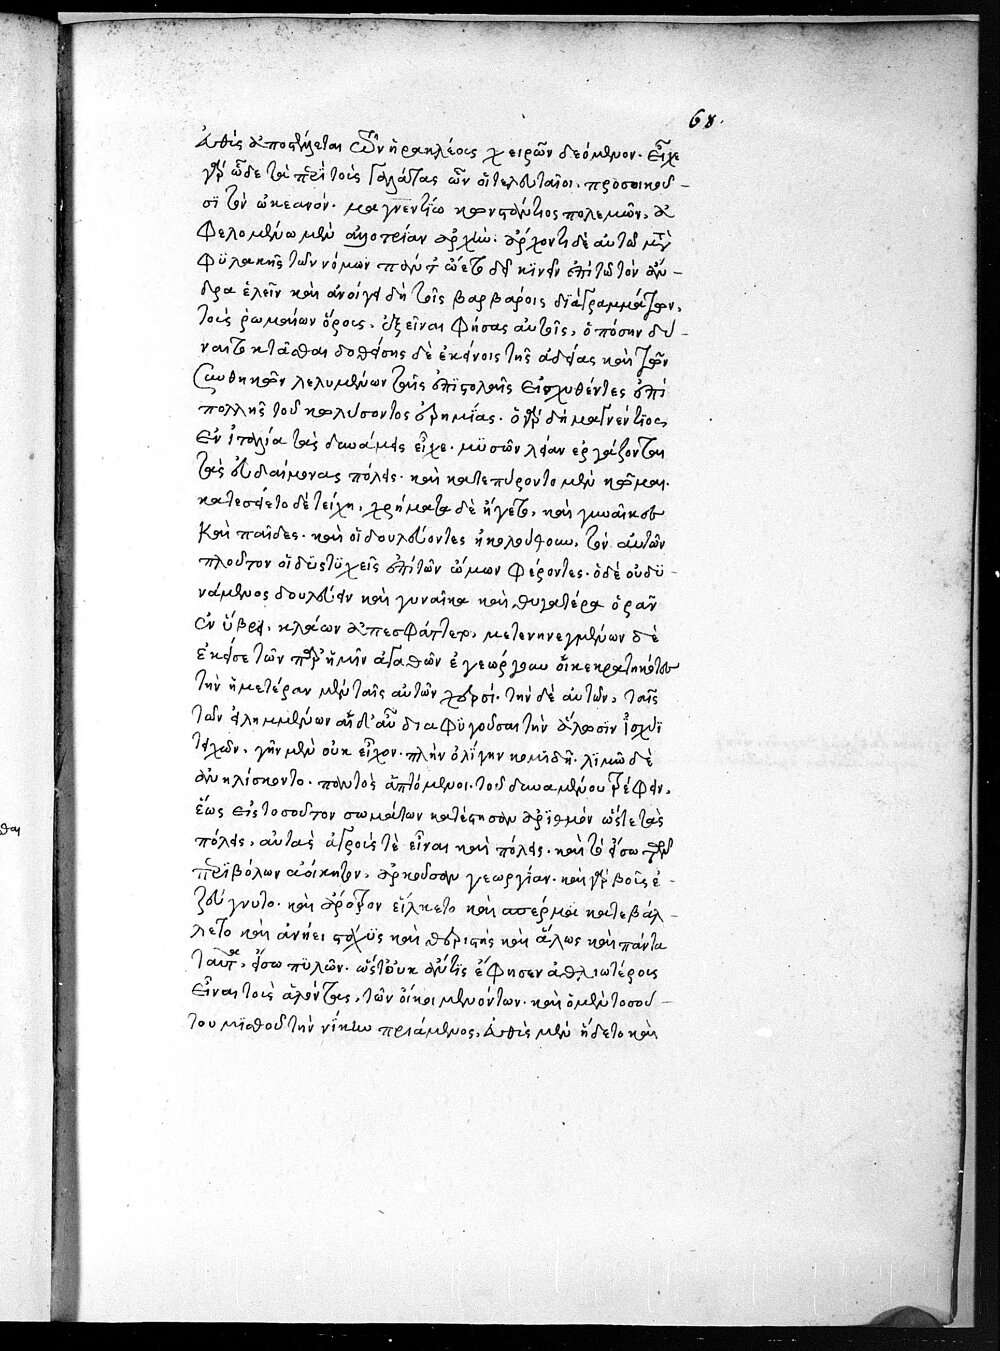 Αὖθις ἀποστέλλεται τῶν ἡρακλέους χειρῶν δεόμενον. εἶχε
γὰρ ὧδε τὰ περὶ τοὺς Γαλάτας ὧν οἱ τελευταῖοι, προσοικοῦ-
σι τὸν ὠκεανόν. μαγνεντίω κωνστάντιος πολεμῶν, ἀ
φελομένω μὲν ἀλλοτρίαν ἀρχήν. ἄρχοντι δὲ αὐτῶ μετὰ
φϋλακῆς τῶν νόμων πάντ' ὤετο δεῖν κϊνεῖν ἐπὶ τῶ τὸν ἄν-
δρα ἑλεῖν καὶ ἀνοίγει δὴ τοῖς βαρβάροις διὰ γραμμάτων,
τοὺς ῥωμαίων ὅρους, ἐξεῖναι φήσας αὐτοῖς, ὁπόσην δύ-
ναιντο κτᾶσθαι δοθείσης δὲ ἐκείνοις τῆς ἀδείας καὶ τῶν
συνθηκῶν λελυμένων ταῖς ἐπϊστολαῖς εἰσχυθέντες ἐπὶ
πολλῆς τοῦ κωλύσοντος ἐρημίας. ὁ γὰρ δὴ μαγνέντϊος
ἐν ἰταλία τὰς δυνάμεις εἶχε. μϋσῶν λείαν ἐργάζονται
τὰς εὐδαίμονας πόλεις. καὶ κατεσύροντο μὲν κῶμαι.
κατεσείετο δὲ τείχη, χρήματα δὲ ἤγετο, καὶ γυναῖκες
καὶ παῖδες. καὶ οἱ δουλεύοντες ἠκολούθουν, τὸν αὑτῶν
πλοῦτον οἱ δϋστϋχεῖς ἐπὶ τῶν ὤμων φέροντες. ὁ δὲ οὐ δϋ-
νάμενος δουλεύειν καὶ γυναῖκα καὶ θυγατέρα ὁρᾶν
ἐν ὕβρει, κλαίων ἀπεσφάττετο, μετενηνεγμένων δὲ
ἐκεῖσε τῶν παρ' ἡμῖν ἀγαθῶν ἐγεώργουν οἱ κεκρατηκότες
τὴν ἡμετέραν μὲν ταῖς αὑτῶν χερσί. τὴν δὲ αὑτῶν, ταῖς
τῶν εἰλημμένων αἱ δ' αὖ διαφϋγοῦσαι τὴν ἅλωσϊν ἰσχύϊ
τειχῶν, γῆν μὲν οὐκ εἶχον. πλὴν ὀλίγην κομϊδῆ. λϊμῶ δὲ
ἀνηλίσκοντο. παντὸς ἁπτόμενοι. τοῦ δυναμένου τρέφειν,
ἕως εἰς τοσοῦτον σωμάτων κατέστησαν ἀρϊθμὸν ὥστε τὰς
πόλεις, αὐτὰς ἀγρούς τὲ εἶναι καὶ πόλεις. καὶ τὸ εἴσω τῶν
περϊβόλων ἀοίκητον, ἀρκοῦσαν γεωργίαν. καὶ γὰρ βοῦς ἐ-
ζεύγνυτο. καὶ ἄροτρον εἵλκετο καὶ σπέρμα κατεβάλ-
λετο καὶ ἀνήει στάχϋς καὶ θερϊστὴς καὶ ἅλως καὶ πάντα
ταῦτα, εἴσω πϋλῶν. ὥστ' οὐκ ἄν τϊς ἔφησεν ἀθλιωτέρους
εἶναι τοὺς ἁλόντας, τῶν οἴκοι μενόντων. καὶ ὁ μὲν τοσού-
του μϊσθοῦ τὴν νίκην πριάμενος, Αὖθις μὲν ἥδετο καὶ